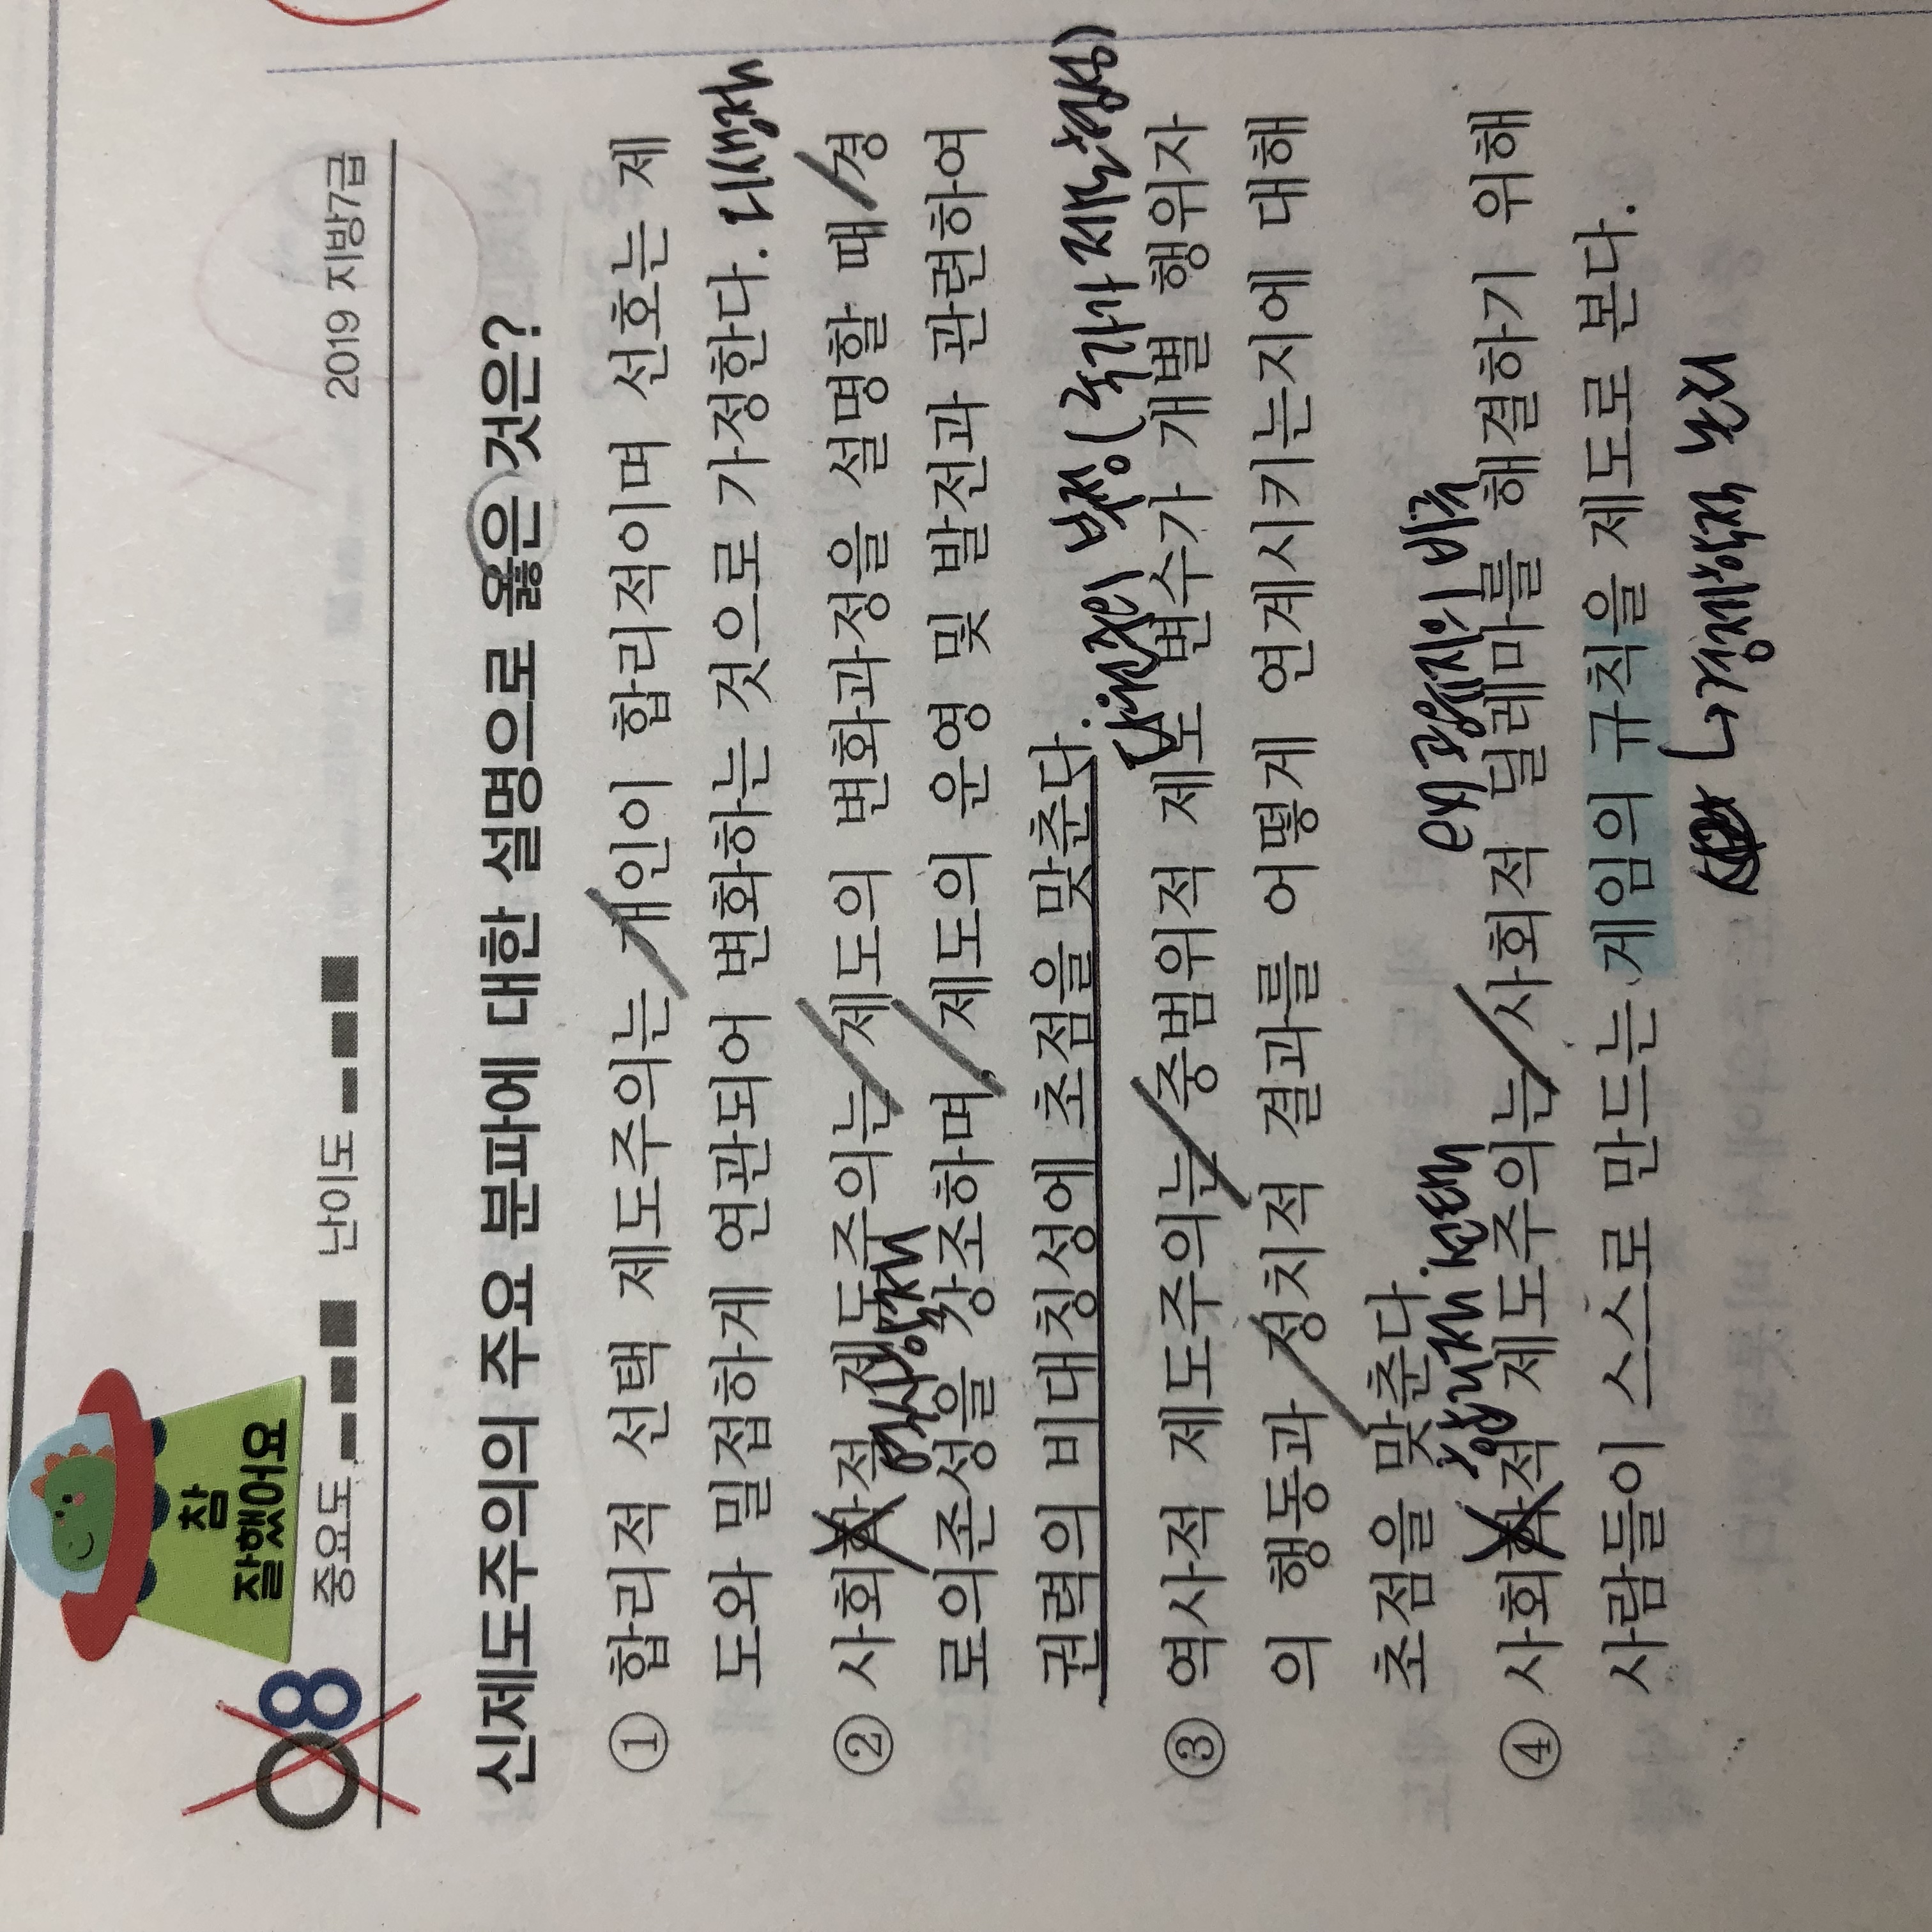 참
잘했어요
08
중요도 난이도 2019 지방7급
신제도주의의 주요 분파에 대한 설명으로 옳은 것은?
① 합리적 선택 제도주의는 개인이 합리적이며 선호는 제
도와 밀접하게 연관되어 변화하는 것으로 가정한다.
② 사회학적 제도주의는 제도의 변화과정을 설명할 때 경
역사적
로의존성을 강조하며, 제도의 운영 및 발전과 관련하여
권력의 비대칭성에 초점을 맞춘다.
③ 역사적 제도주의는 중범위적 제도 변수가 개별 행위자
의 행동과 정치적 결과를 어떻게 연계시키는지에 대해
초점을 맞춘다.
합리적 선택
④ 사회학적 제도주의는 사회적 딜레마를 해결하기 위해
사람들이 스스로 만드는 게임의 규칙을 제도로 본다.
↳ 경제학적 논리